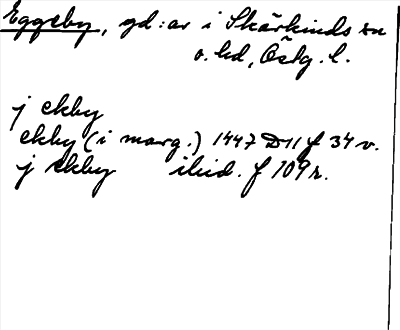 Eggeby, gd:ar i Skärkinds sn
o. hd, Östg. l.
j ekby
ekby (i marg.) 1447 D11 f 34 v.
j ekby ibid. f 109 r.